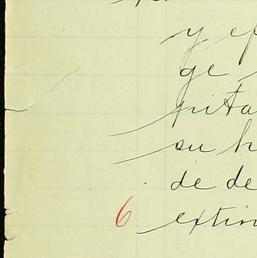 y ef
ge
pita
su h
de de
6 extin